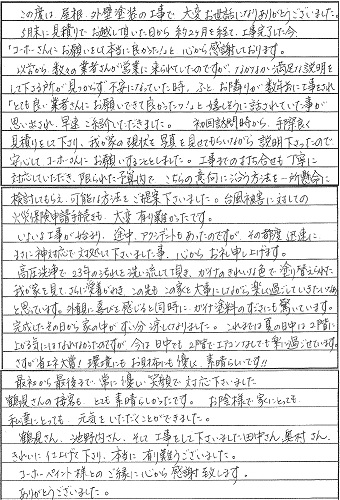 この度は、屋根・外壁塗装の工事で大変お世話になりありがとうございました。
5月末に見積りでお越し頂いた日から約2ヶ月を経て、工事完了した今
「コーホーさんにお願いをして本当に良かった!」と心から感謝しております。
以前から数々の業者さんが営業に来られていたのですが、なかなか満足な説明を
して下さる所が見つからず不安になっていた時、ふとお隣りが数年前に工事をされ
「とても良い業者さんにお願いできて良かったヮ!」と嬉しそうに話されていた事が
思い出され、早速ご紹介いただきました。 初回訪問時から、手際良く
見積りをして下り、我が家の現状を写真を見せてもらいながら説明下さったので
安心してコーホーさんにお願いすることとしました。工事までの打ち合せも丁寧に
対応していただき、限られた予算内で、こちらの意向に沿う方法を一所懸命に
検討してもらえ、可能な方法をご提案下さいました。台風被害に対しての
火災保険申請手続きも、大変有り難かったです。
いよいよ工事が始まり、途中、アクシデントもあったのですが、その都度迅速に
まさに神対応で対処して下さいました事、心からお礼申し上げます。
高圧洗浄で23年のよごれを洗い流して頂き、ガイナのきれいな色で塗り替えられた
我が家を見て、さらに愛着がわき、この先もこの家を大事にしながら楽しく過ごしていきたいなぁ
と思っています。外観に喜びを感じると同時に、ガイナ塗料のすごさにも驚いています。
完成したその日から家の中がずい分涼しくなりました。これまでは夏の日中は2階に
上がる気にはなれなかったのですが、今は日中でも2階でエアコンなしでも楽に過ごせています。
さすが省エネ大賞!環境にもお財布にも優しく、素晴らしいです!!
最初から最後まで、常に優しい笑顔で対応下さいました
鶴見さんの接客も、とても素晴らしかったです。お陰様で家にとっても
私達にとっても元気をいただくことができました。
鶴見さん、池野内さん、そして工事をして下さいました田中さん、奥村さん、
きれいに仕上げて下り、本当に有り難うございました。
コーホーペイント様とのご縁に心から感謝致します。
ありがとうございました。